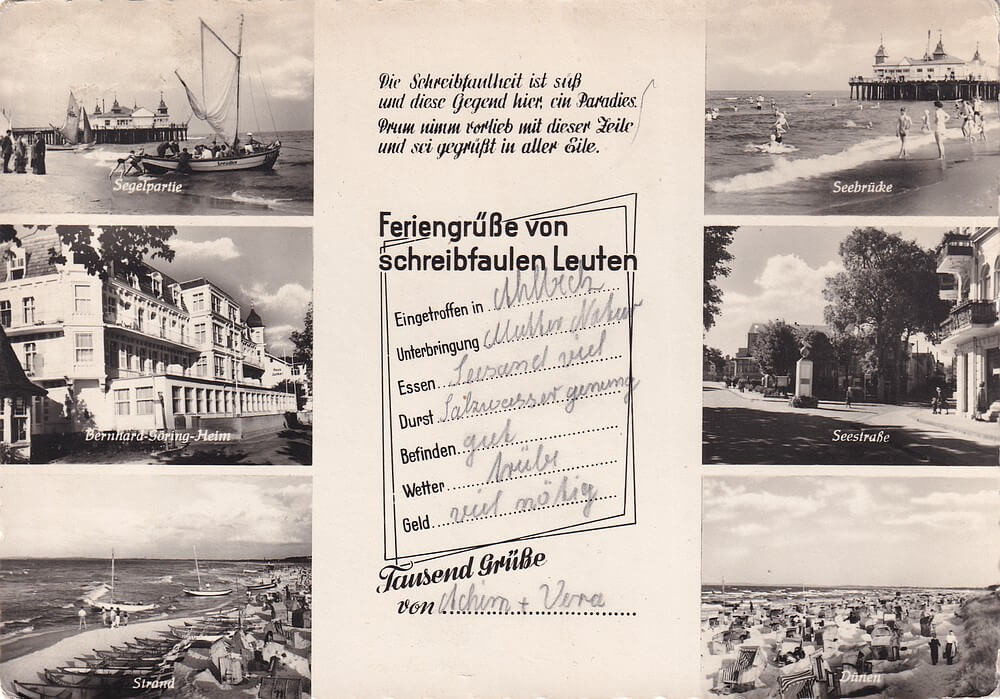 Segelpartie
Bernhard-Göring-Heim
Strand
Die Schreibfaulheit ist süß
und diese Gegend hier, ein Paradies.
Drum nimm vorlieb mit dieser Zeile
und sei gegrüßt in aller Eile.
Feriengrüße von
schreibfaulen Leuten
Eingetroffen in Ahlbeck
Unterbringung Mutter Natur
Essen Seesand viel
Durst Salzwasser genung
Befinden gut
Wetter trübe
Geld viel nötig
Tausend Grüße
von Achim + Vera
Seebrücke
Seestraße
Dünen